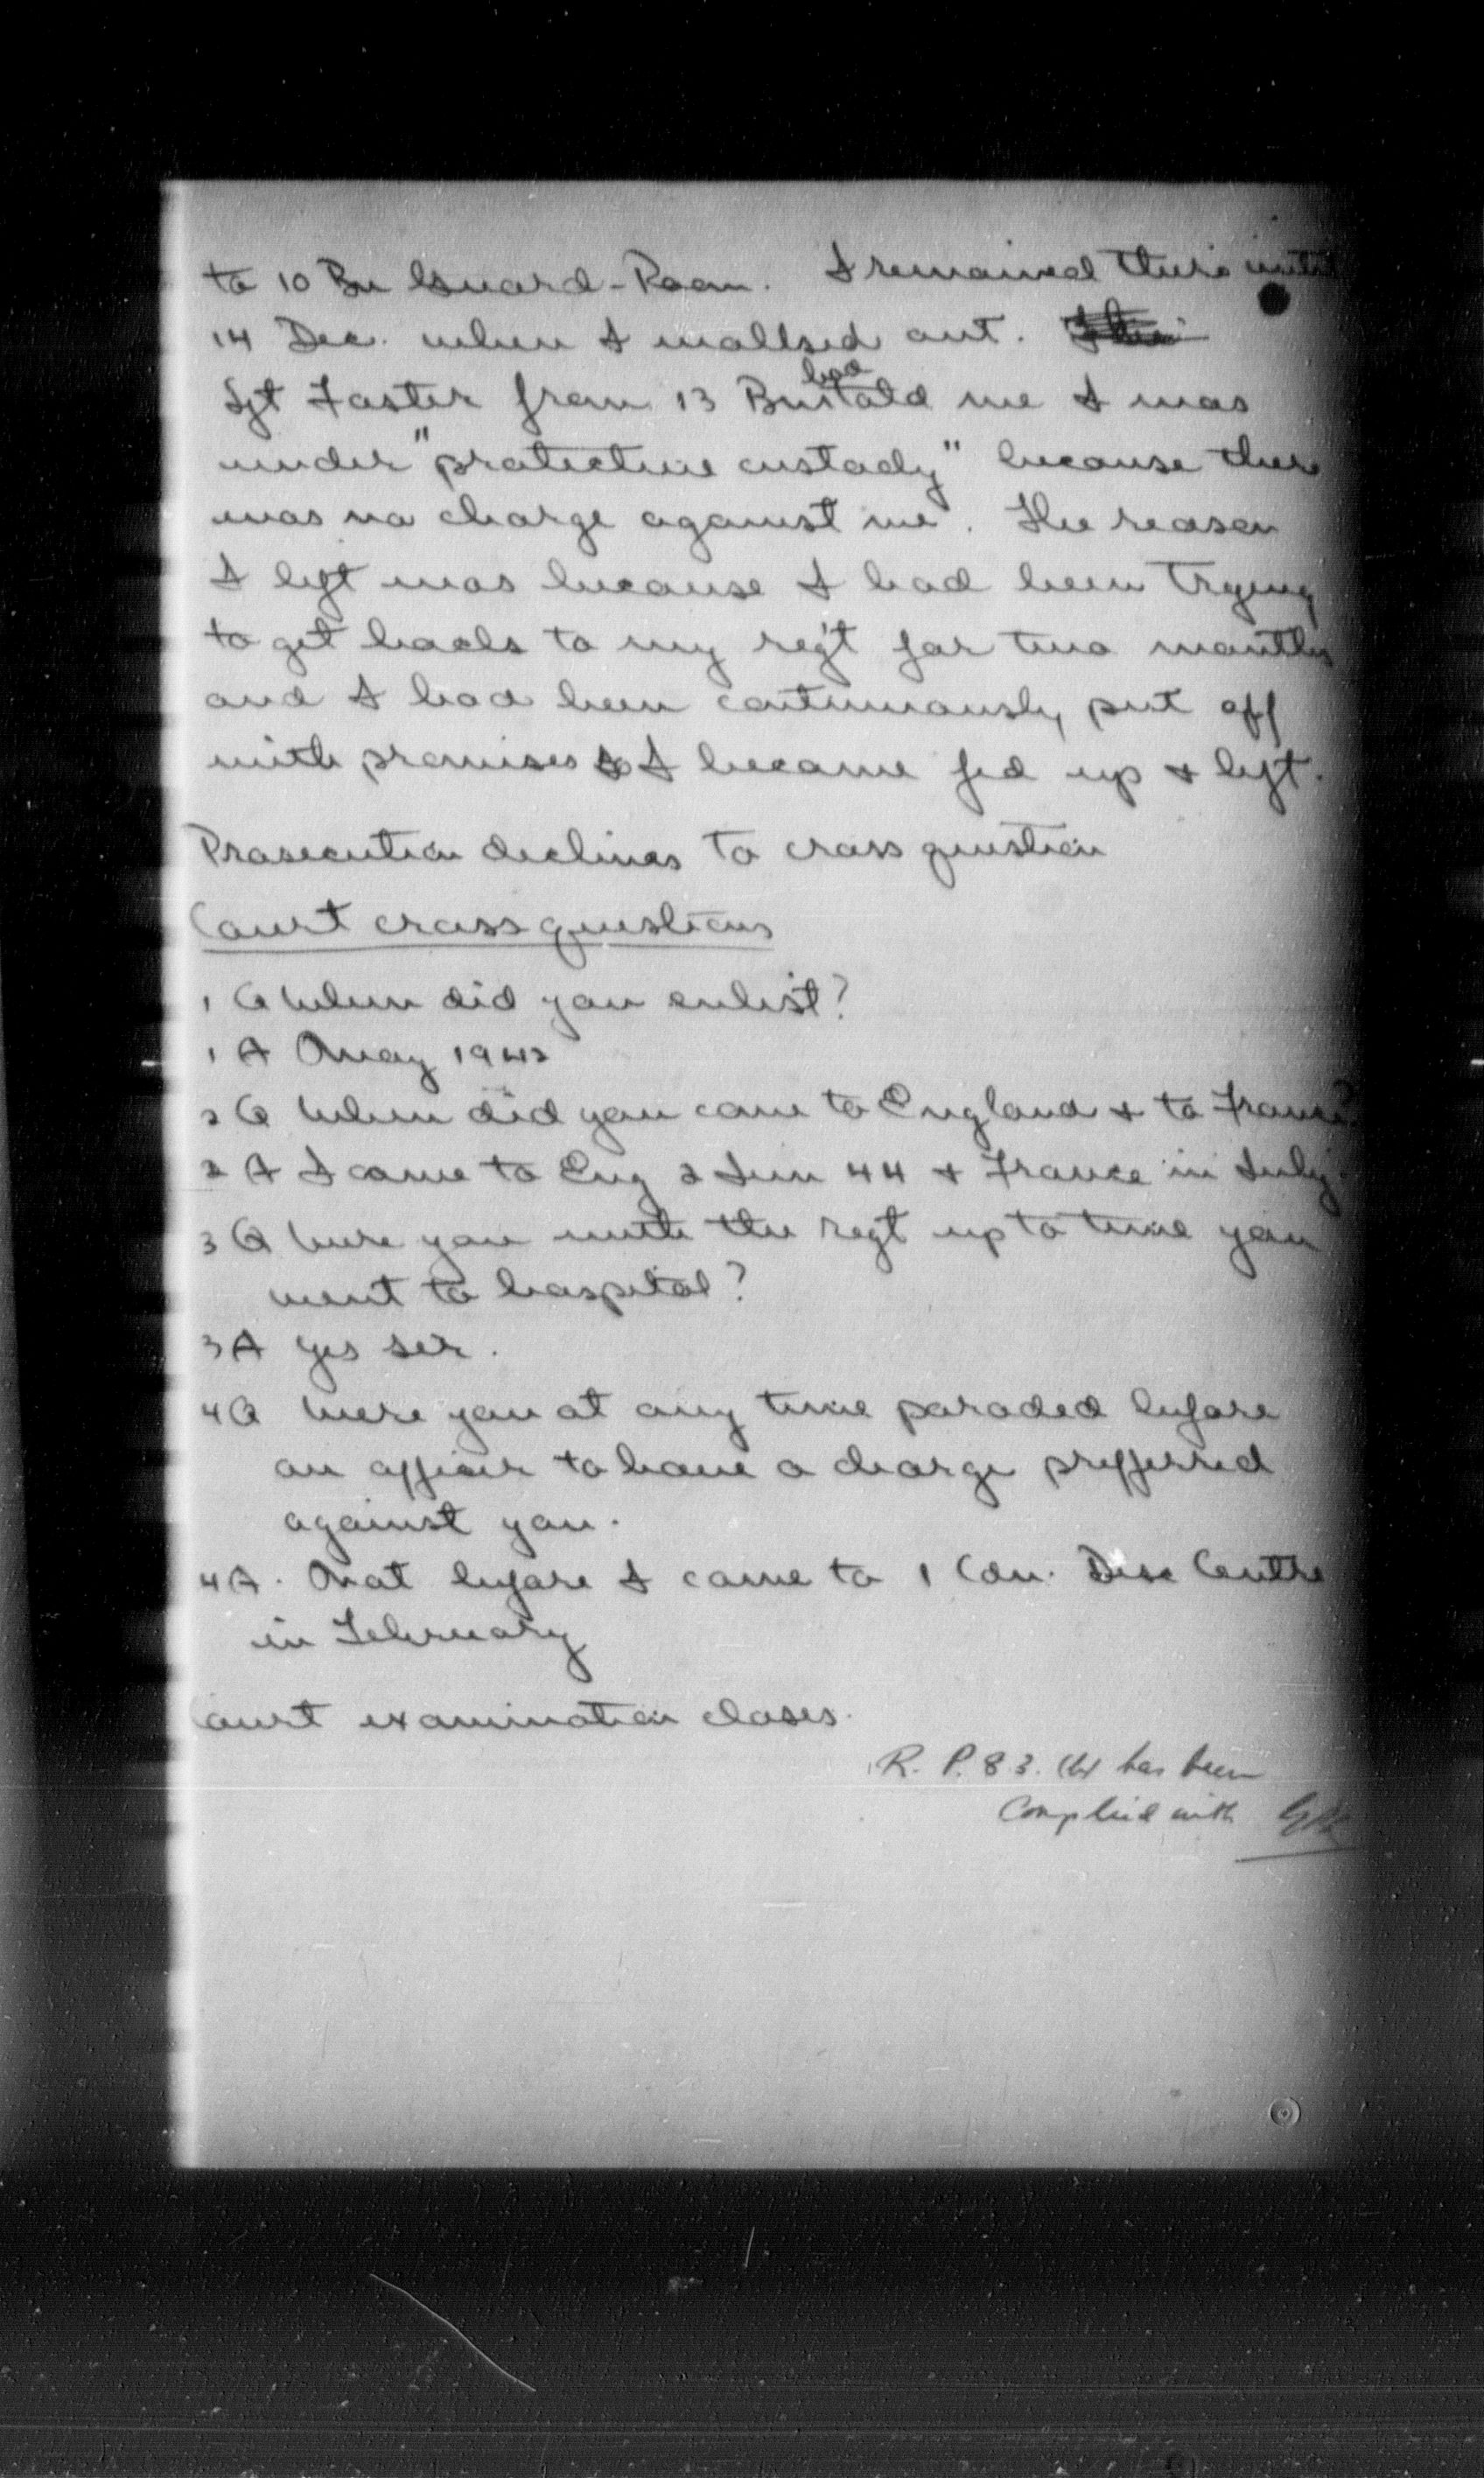 to 10 Bn Guard-Room. I remained there until
14 Dec. when I walked out.
Sgt Foster from 13 Bn had told me I was
under "protective custody" because there
was no charge against me. The reason
I left was because I had been trying
to get back to my reg't for two months
and I had been continuously put off
with promises so I became fed up & left.
Prosecution declines to cross question
Court cross questions
1 Q When did you enlist?
1 A May 1942
2 Q When did you come to England & to France?
2 A I came to Eng 2 Jun 44 & France in July.
3 Q Were you with the regt up to time you
went to hospital?
3 A Yes sir.
4 Q Were you at any time paraded before
an officer to have a charge prefferred
against you.
4 A. Not before I came to 1 Cdn. Disc Centre
in February
Court examination closes.
R. P. 83. (b) has been
Complied with